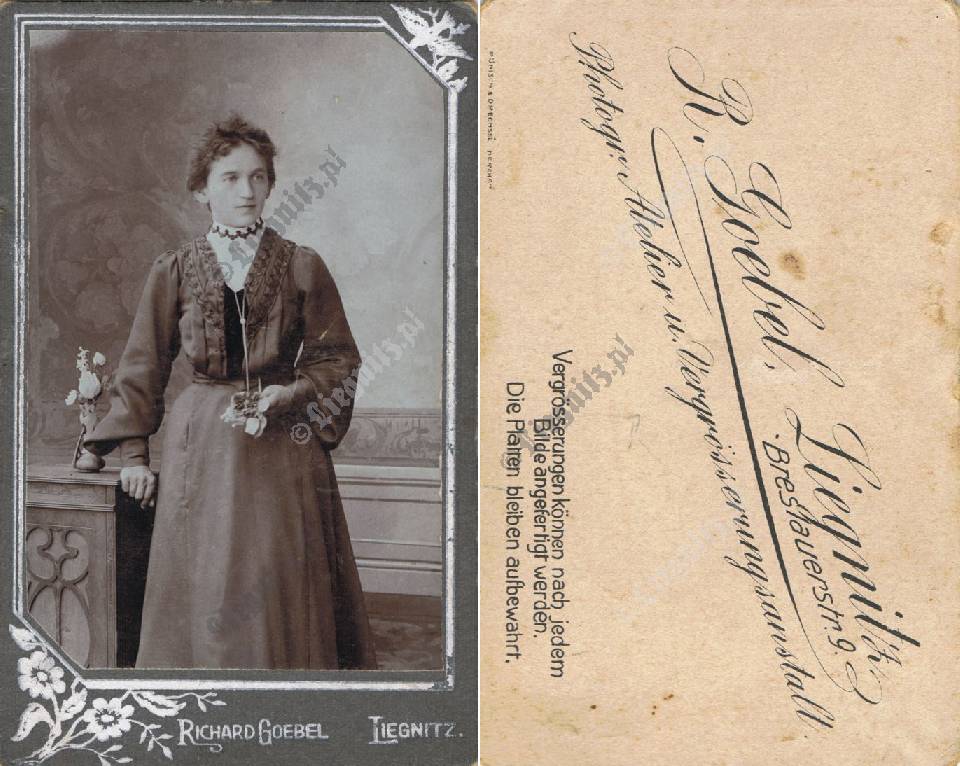 RICHARD GOEBEL LIEGNITZ.
© Liegnitz.pl
© Liegnitz.pl
R. Goebel, Liegnitz
Breslauerstr. 9.
Photogr. Atelier u. Vergrösserungsanstalt
Vergrösserungen können nach jedem
Bilde angefertigt werden.
Die Platten bleiben aufbewahrt.
Liegnitz.pl